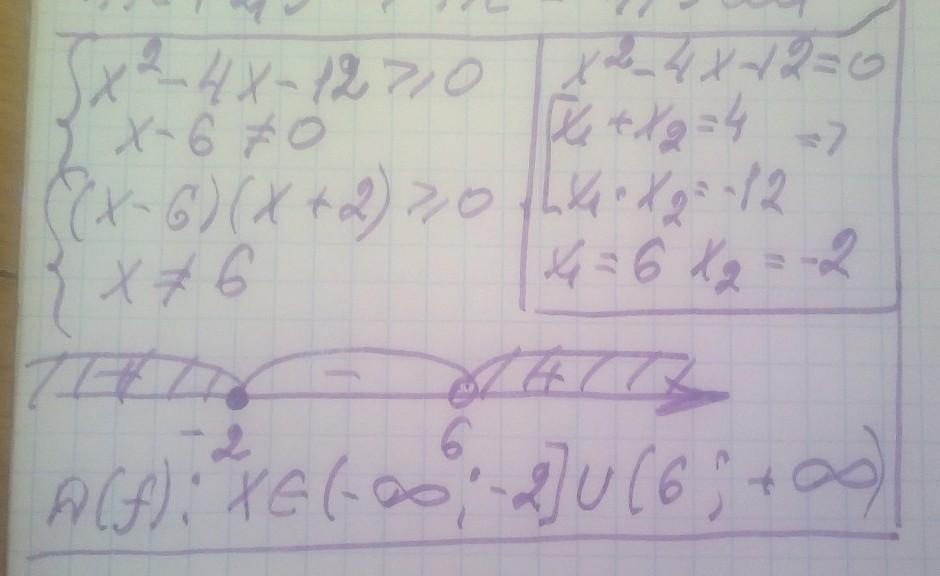 x²-4x-12≥0
x-6≠0
(x-6)(x+2)≥0
x≠6
x²-4x-12=0
x₁+x₂=4 =>
x₁·x₂=-12
x₁=6 x₂=-2
+ - +
-2 6
D(f): x∈(-∞;-2]∪(6;+∞)